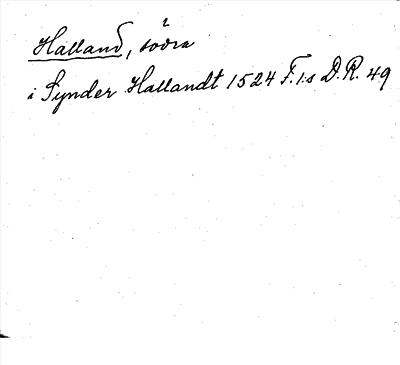 Halland, södra
i Synder Hallandt 1524 F.I:s D.R. 49